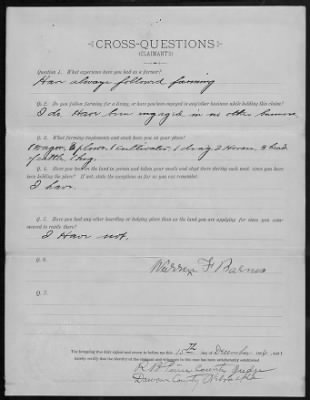 CROSS-QUESTIONS
(CLAIMANT'S)
Question 1. What experience have you had as a farmer?
Have always followed farming
Q. 2. Do you follow farming for a living, or have you been engaged in any other business while holding this claim?
I do. Have been engaged in no other business
Q. 3. What farming implements and stock have you on your place?
1 Wagon, 2 plows, 1 cultivator, 1 drag 2 Horses, 3 head
of cattle, 1 hog.
Q. 4. Have you on the land in person and taken your meals and slept there during each week since you have
been holding the place? If not, state the exceptions as far as you can remember.
I have
Q. 5. Have you had any other boarding or lodging place than on the land you are applying for since you com-
menced to reside there?
I Have not.
Q. 6.
Warren F Barnes
Q. 7.
The foregoing was duly signed and sworn to before me this 15th day of December 188
hereby certify that the identity of the claimant and witnesses in this case has been satisfactorily established
County Judge
Dawson County, Nebraska